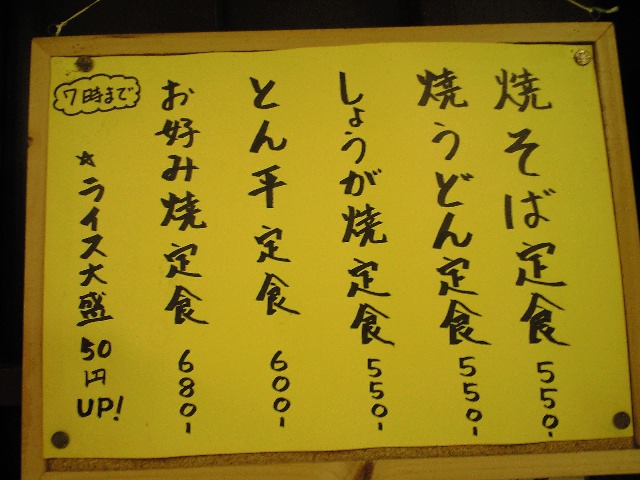 焼そば定食 550-
焼うどん定食 550-
しょうが焼定食 550-
とん平定食 600-
お好み焼定食 680-
7時まで
★ライス大盛50円UP!